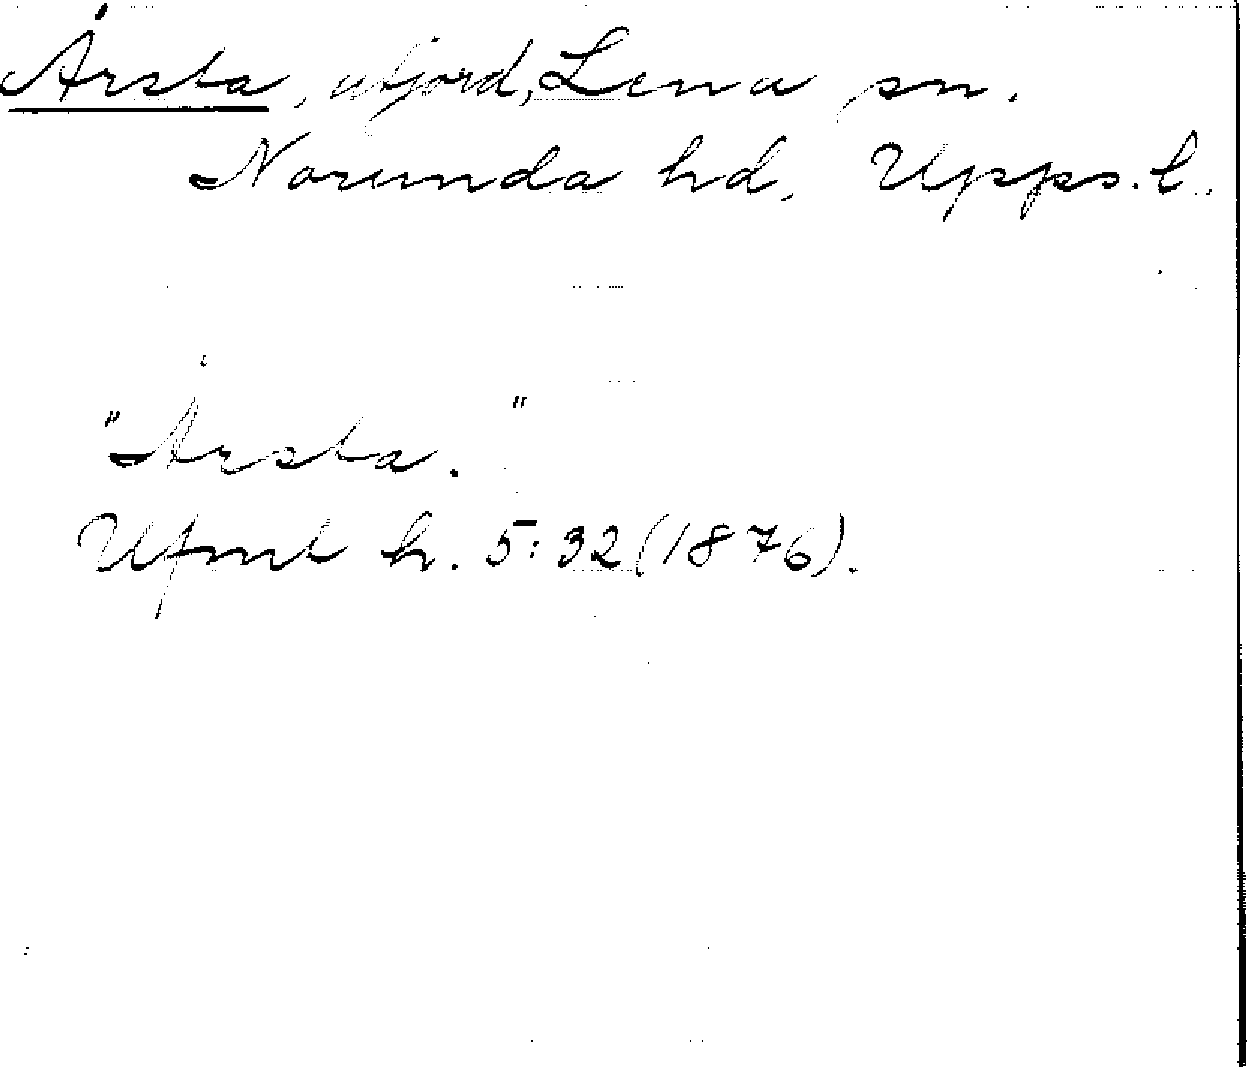 Årsta, utjord, Lena sn.
Norunda hd. Upps. l.
"Årsta."
Ufmt h. 5:32 (1876).